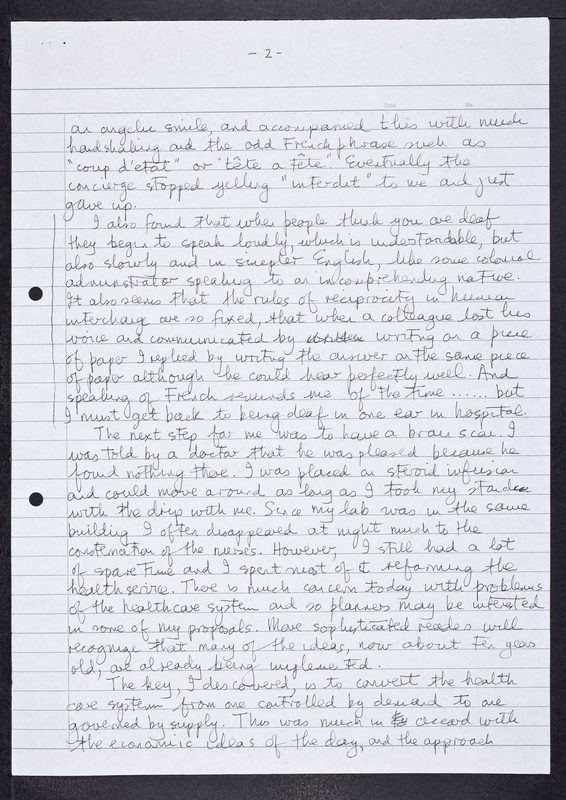 - 2 -
Date No.
an angelic smile, and accompanied this with much
handshaking and the odd French phrase such as
"coup d'etat" or "tête a tête". Eventually the
concierge stopped yelling "interdit" to me and just
gave up.
I also found that when people think you are deaf
they begin to speak loudly, which is understandable, but
also slowly and in simpler English, like some colonial
administrator speaking to an incomprehending native.
It also seems that the rules of reciprocity in human
interchange are so fixed, that when a colleague lost his
voice and communicated by writing on a piece
of paper I replied by writing the answer on the same piece
of paper although he could hear perfectly well. And
speaking of French reminds me of the time ...... but
I must get back to being deaf in one ear in hospital.
The next step for me was to have a brain scan. I
was told by a doctor that he was pleased because he
found nothing there. I was placed on steroid infusion
and could move around as long as I took my stand
with the drip with me. Since my lab was in the same
building I often disappeared at night much to the
consternation of the nurses. However, I still had a lot
of spare time and I spent most of it reforming the
health service. There is much concern today with problems
of the healthcare system and so planners may be interested
in some of my proposals. More sophisticated readers will
recognize that many of the ideas, now about ten years
old, are already being implemented.
The key, I discovered, is to convert the health
care system from one controlled by demand to one
governed by supply. This was much in accord with
the economic ideas of the day, and the approach